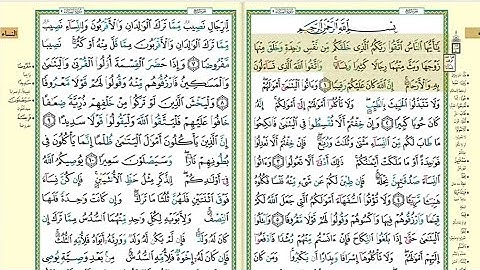 بِسْمِ اللَّهِ الرَّحْمَٰنِ الرَّحِيمِ
يَٰٓأَيُّهَا النَّاسُ اتَّقُوا رَبَّكُمُ الَّذِي خَلَقَكُم مِّن نَّفْسٍ وَٰحِدَةٍ وَخَلَقَ مِنْهَا
زَوْجَهَا وَبَثَّ مِنْهُمَا رِجَالًا كَثِيرًا وَنِسَآءً وَاتَّقُوا اللَّهَ الَّذِي تَسَآءَلُونَ
بِهِ وَالْأَرْحَامَ إِنَّ اللَّهَ كَانَ عَلَيْكُمْ رَقِيبًا ١ وَءَاتُوا الْيَتَٰمَىٰٓ أَمْوَٰلَهُمْ
وَلَا تَتَبَدَّلُوا الْخَبِيثَ بِالطَّيِّبِ وَلَا تَأْكُلُوٓا أَمْوَٰلَهُمْ إِلَىٰٓ أَمْوَٰلِكُمْ إِنَّهُ
كَانَ حُوبًا كَبِيرًا ٢ وَإِنْ خِفْتُمْ أَلَّا تُقْسِطُوا فِي الْيَتَٰمَىٰ فَانكِحُوا
مَا طَابَ لَكُم مِّنَ النِّسَآءِ مَثْنَىٰ وَثُلَٰثَ وَرُبَٰعَ فَإِنْ خِفْتُمْ أَلَّا تَعْدِلُوا
فَوَٰحِدَةً أَوْ مَا مَلَكَتْ أَيْمَٰنُكُمْ ذَٰلِكَ أَدْنَىٰٓ أَلَّا تَعُولُوا ٣ وَءَاتُوا
النِّسَآءَ صَدُقَٰتِهِنَّ نِحْلَةً فَإِن طِبْنَ لَكُمْ عَن شَيْءٍ مِّنْهُ نَفْسًا فَكُلُوهُ
هَنِيٓـًٔا مَّرِيٓـًٔا ٤ وَلَا تُؤْتُوا السُّفَهَآءَ أَمْوَٰلَكُمُ الَّتِي جَعَلَ اللَّهُ لَكُمْ
قِيَٰمًا وَارْزُقُوهُمْ فِيهَا وَاكْسُوهُمْ وَقُولُوا لَهُمْ قَوْلًا مَّعْرُوفًا ٥ وَابْتَلُوا
الْيَتَٰمَىٰ حَتَّىٰٓ إِذَا بَلَغُوا النِّكَاحَ فَإِنْ ءَانَسْتُم مِّنْهُمْ رُشْدًا فَادْفَعُوٓا
إِلَيْهِمْ أَمْوَٰلَهُمْ وَلَا تَأْكُلُوهَآ إِسْرَافًا وَبِدَارًا أَن يَكْبَرُوا وَمَن كَانَ
لِّلرِّجَالِ نَصِيبٌ مِّمَّا تَرَكَ الْوَٰلِدَانِ وَالْأَقْرَبُونَ وَلِلنِّسَآءِ نَصِيبٌ
مِّمَّا تَرَكَ الْوَٰلِدَانِ وَالْأَقْرَبُونَ مِمَّا قَلَّ مِنْهُ أَوْ كَثُرَ نَصِيبًا
مَّفْرُوضًا ٧ وَإِذَا حَضَرَ الْقِسْمَةَ أُولُوا الْقُرْبَىٰ وَالْيَتَٰمَىٰ
وَالْمَسَٰكِينُ فَارْزُقُوهُم مِّنْهُ وَقُولُوا لَهُمْ قَوْلًا مَّعْرُوفًا
٨ وَلْيَخْشَ الَّذِينَ لَوْ تَرَكُوا مِنْ خَلْفِهِمْ ذُرِّيَّةً ضِعَٰفًا
خَافُوا عَلَيْهِمْ فَلْيَتَّقُوا اللَّهَ وَلْيَقُولُوا قَوْلًا سَدِيدًا ٩
إِنَّ الَّذِينَ يَأْكُلُونَ أَمْوَٰلَ الْيَتَٰمَىٰ ظُلْمًا إِنَّمَا يَأْكُلُونَ فِي
بُطُونِهِمْ نَارًا وَسَيَصْلَوْنَ سَعِيرًا ١٠ يُوصِيكُمُ اللَّهُ
فِيٓ أَوْلَٰدِكُمْ لِلذَّكَرِ مِثْلُ حَظِّ الْأُنثَيَيْنِ فَإِن كُنَّ نِسَآءً
فَوْقَ اثْنَتَيْنِ فَلَهُنَّ ثُلُثَا مَا تَرَكَ وَإِن كَانَتْ وَٰحِدَةً فَلَهَا
النِّصْفُ وَلِأَبَوَيْهِ لِكُلِّ وَٰحِدٍ مِّنْهُمَا السُّدُسُ مِمَّا تَرَكَ إِن
كَانَ لَهُ وَلَدٌ فَإِن لَّمْ يَكُن لَّهُ وَلَدٌ وَوَرِثَهُٓ أَبَوَاهُ فَلِأُمِّهِ الثُّلُثُ
فَإِن كَانَ لَهُٓ إِخْوَةٌ فَلِأُمِّهِ السُّدُسُ مِن بَعْدِ وَصِيَّةٍ يُوصِي